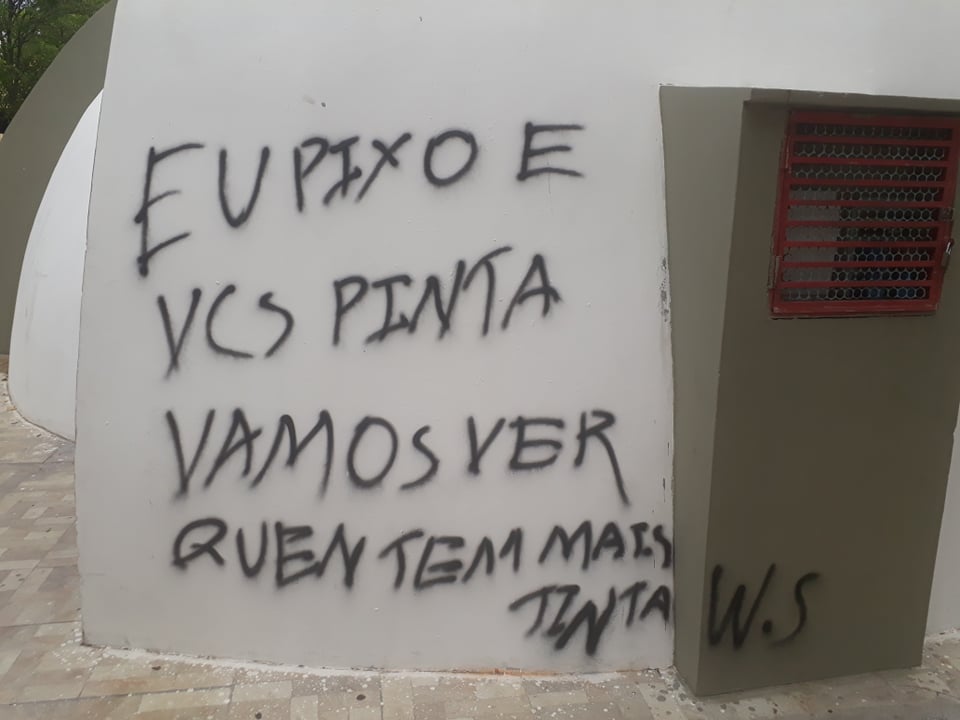 EU PIXO E
VCS PINTA
VAMOS VER
QUEN TEM MAIS
TINTA W.S